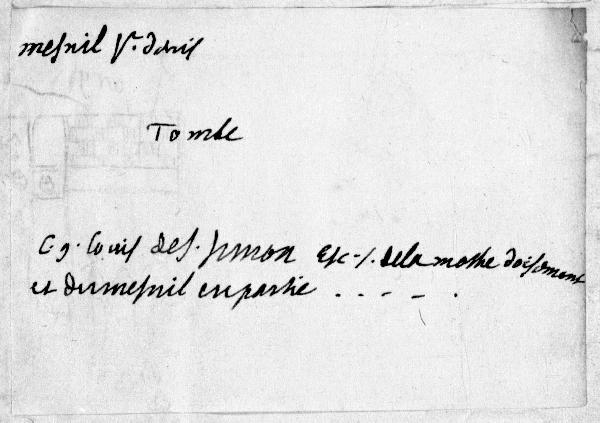 mesnil St. denis
Tombe
C. g. Louis de S. simon Esc. s. de la mothe
et du mesnil en partie . . - - .